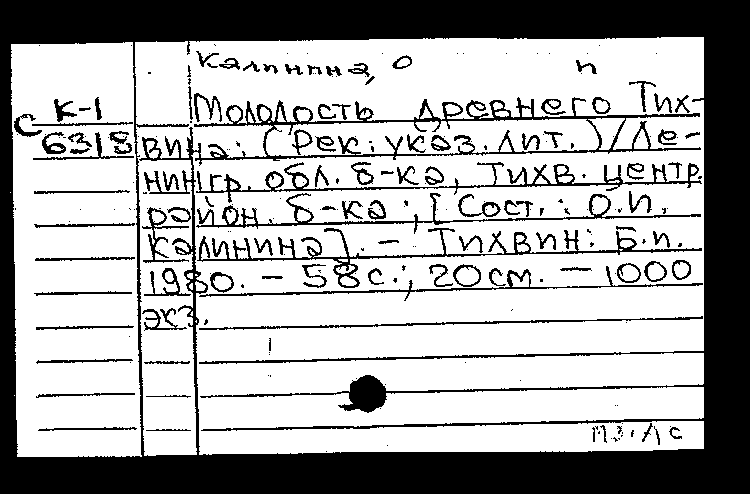 Калинина, О п
К-1 Молодость древнего Тих-
С 6318 вина: (Рек. указ. лит.) / Ле-
нингр. обл. б-ка, Тихв. центр.
район. б-ка; [Сост.: О.П.
Калинина]. — Тихвин: Б.и.
1980. — 58 с.; 20 см. — 1000
экз.